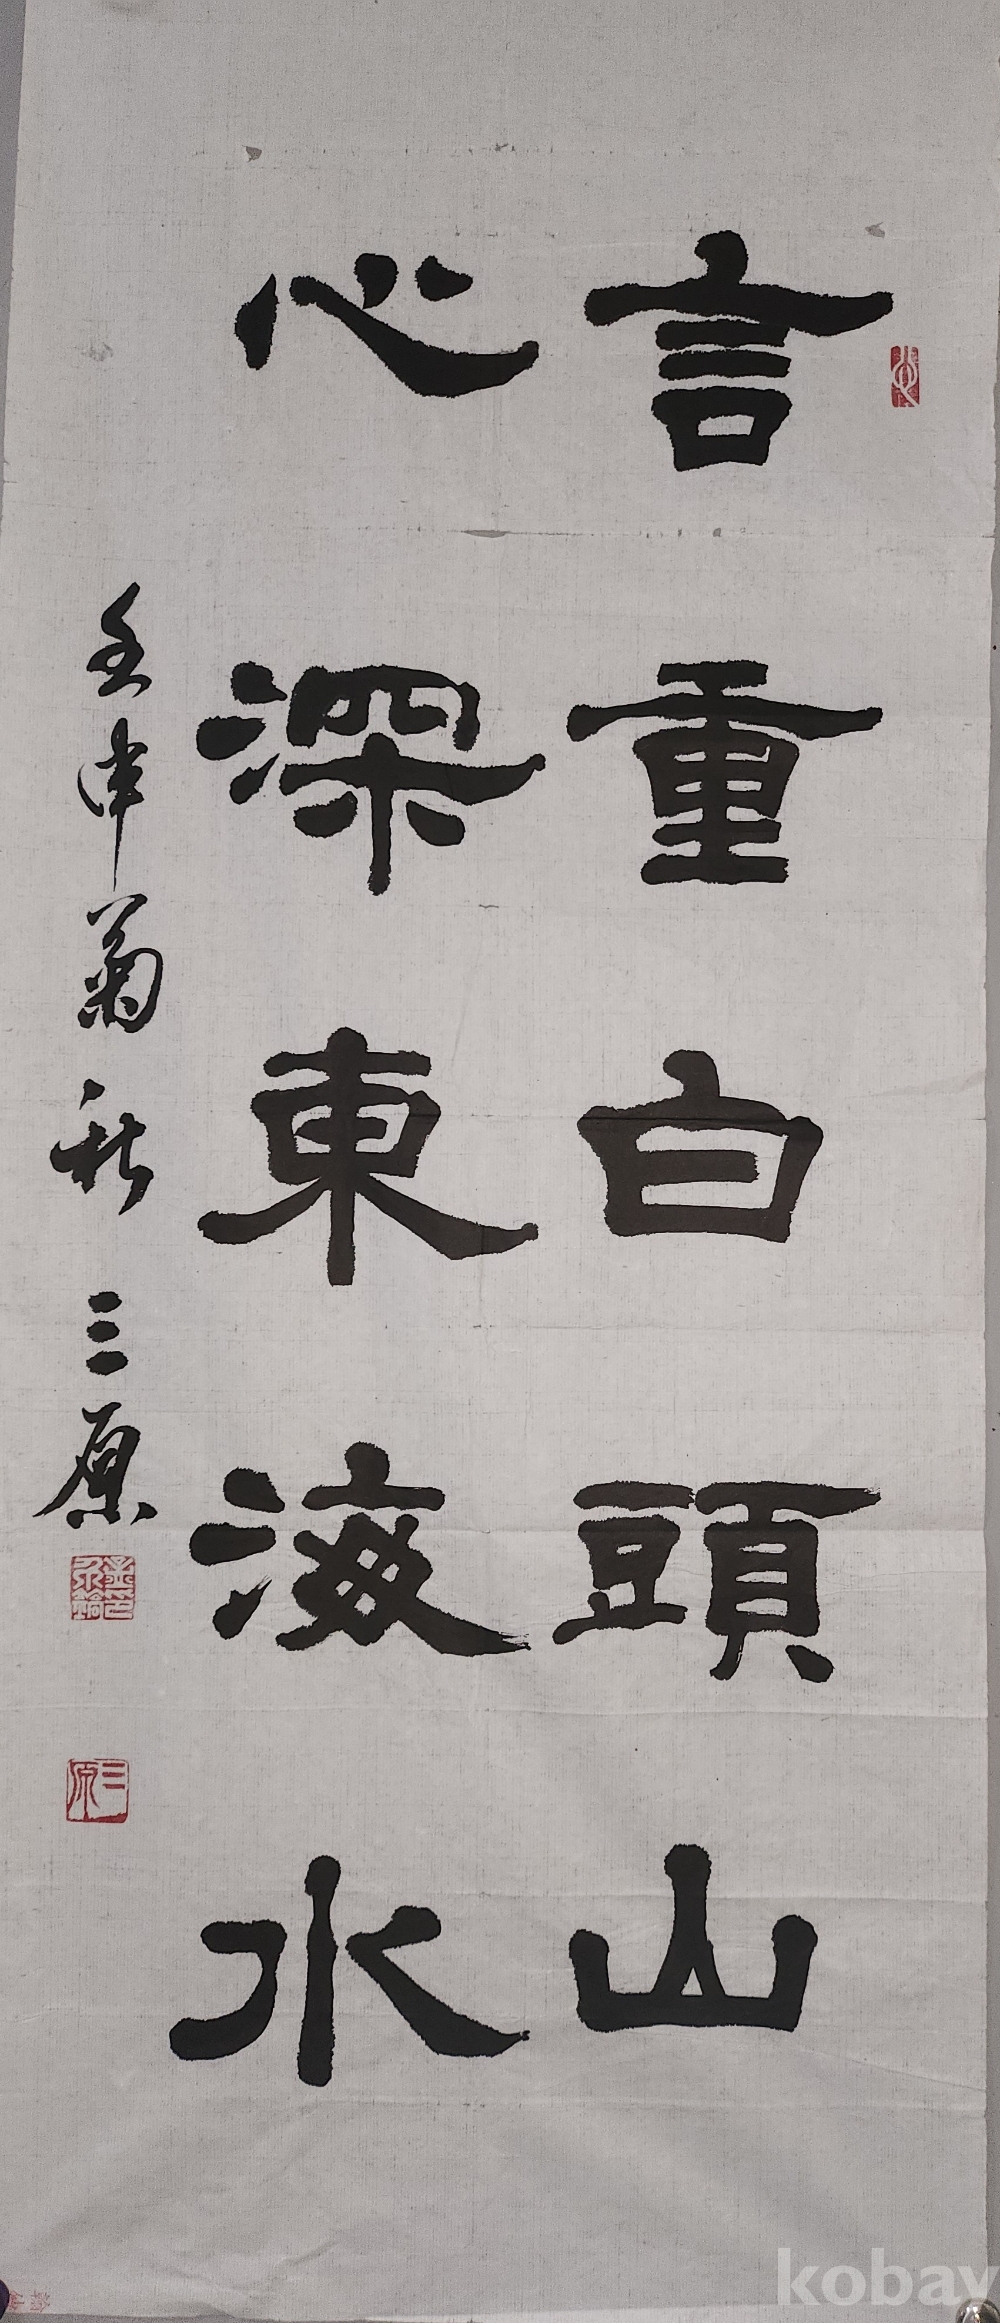 言重白頭山
心深東海水
壬申菊秋 三原
三原
kobay